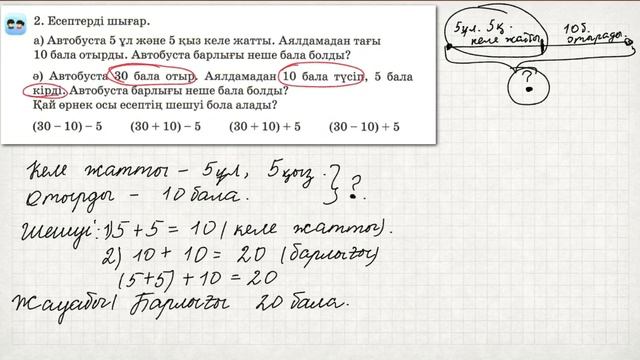 2. Есептерді шығар.
а) Автобуста 5 ұл және 5 қыз келе жатты. Аялдамадан тағы
10 бала отырды. Автобуста барлығы неше бала болды?
ә) Автобуста 30 бала отыр. Аялдамадан 10 бала түсіп, 5 бала
кірді. Автобуста барлығы неше бала болды?
Қай өрнек осы есептің шешуі бола алады?
(30 – 10) – 5 (30 + 10) – 5 (30 + 10) + 5 (30 – 10) + 5
5ұл. 5қ. 10б.
келе жатты отырады.
?
Келе жатты – 5ұл, 5қыз. } ?
Отырды – 10 бала.
Шешуі: 1) 5 + 5 = 10 ( келе жатты).
2) 10 + 10 = 20 (барлығы)
(5+5) + 10 = 20
Жауабы: Барлығы 20 бала.